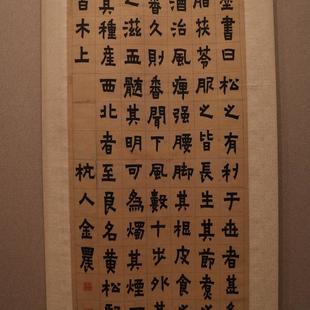 書曰松之有利于世者甚多
脂茯苓服之皆長生其節煮
酒治風痺强腰脚其根皮食
香久則香聞下風數十步外其
之滋五髓其明可為燭其煙
其種產西北者至良名黃松
百木上
杭人金農